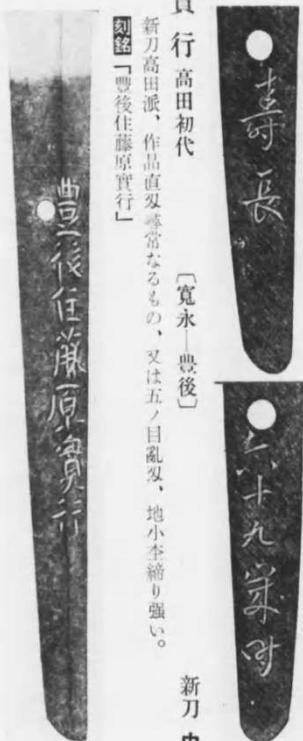 壽長
六十九歳時
行 高田初代 〔寛永—豐後〕 新刀
新刀高田派、作品直刄尋常なるもの、又は五ノ目亂刄、地小杢締り強い。
刻銘「豐後住藤原實行」
豐後住藤原實行